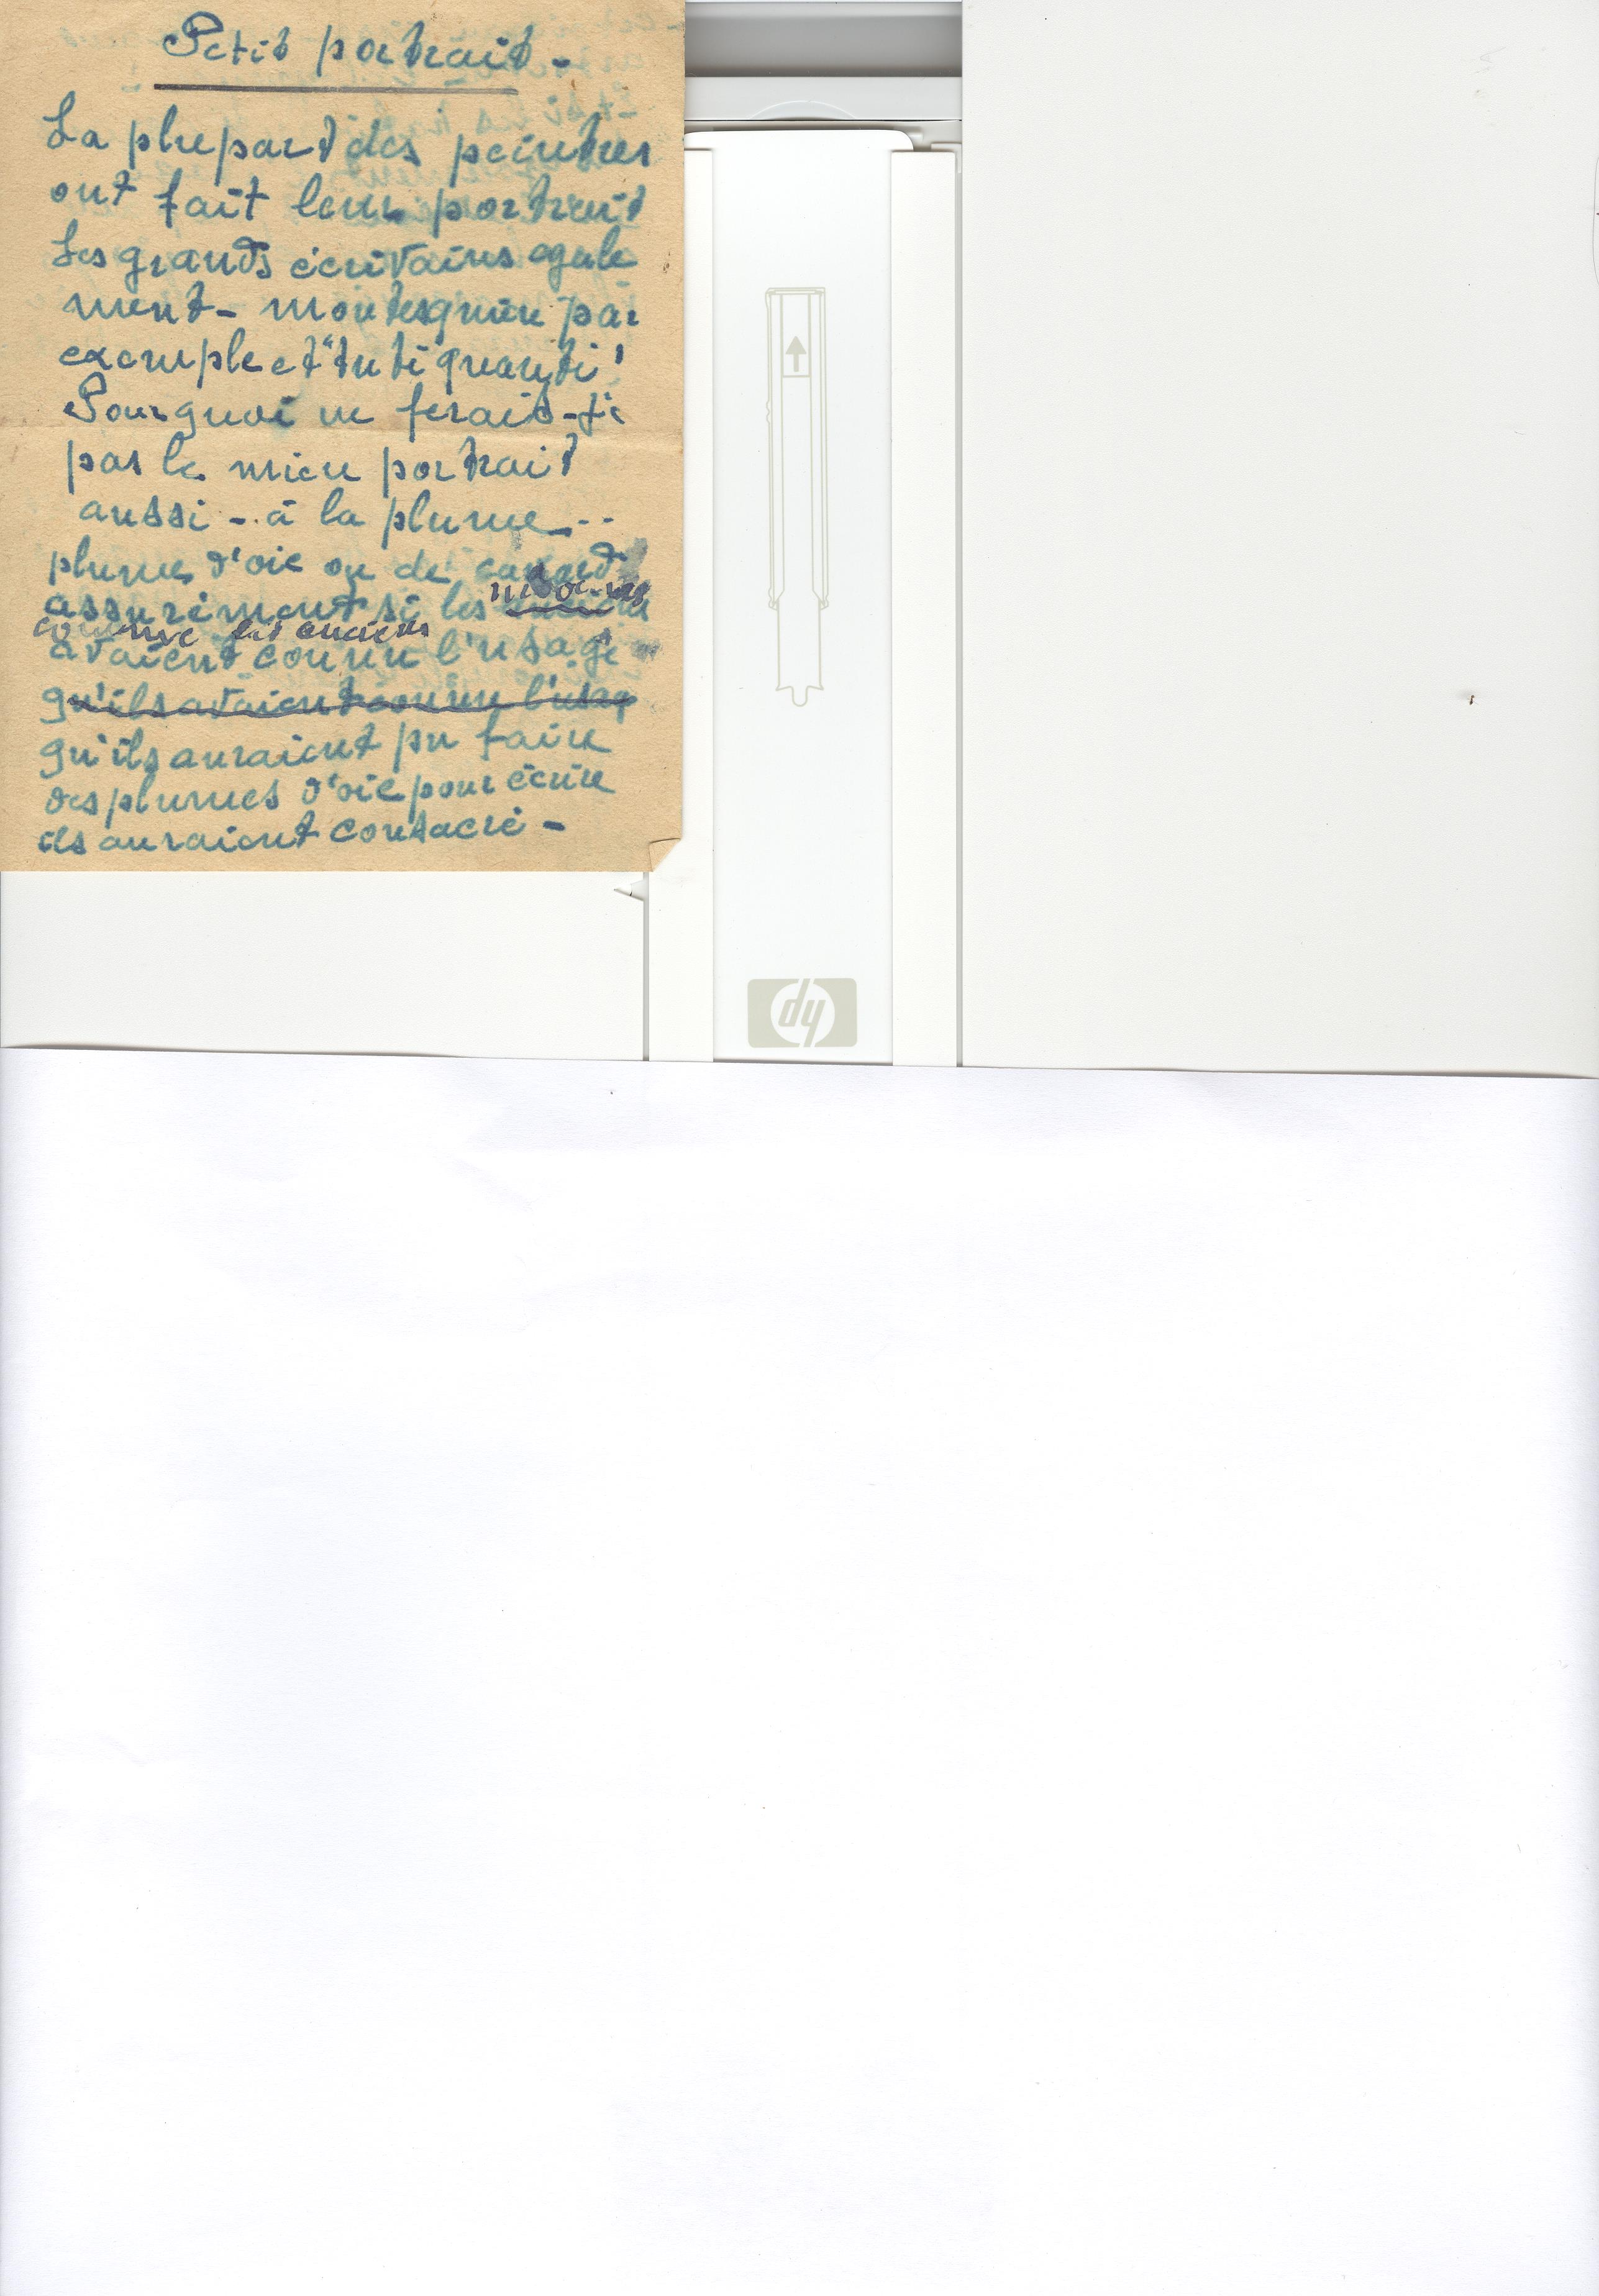 Petit portrait -
La plupart des peintres
ont fait leur portrait
Les grands écrivains egale
ment - montesquieu par
exemple et "tuti quanti"
Pourquoi ne ferais-je
pas le mien portrait
aussi - à la plume --
plume d'oie ou de canard
modernes
assurément si les anciens
comme les anciens
avaient connu l'usage
qu'ils avaient connu l'usag
qu'ils auraient pu faire
des plumes d'oie pour écrire
ils auraient consacré -
hp